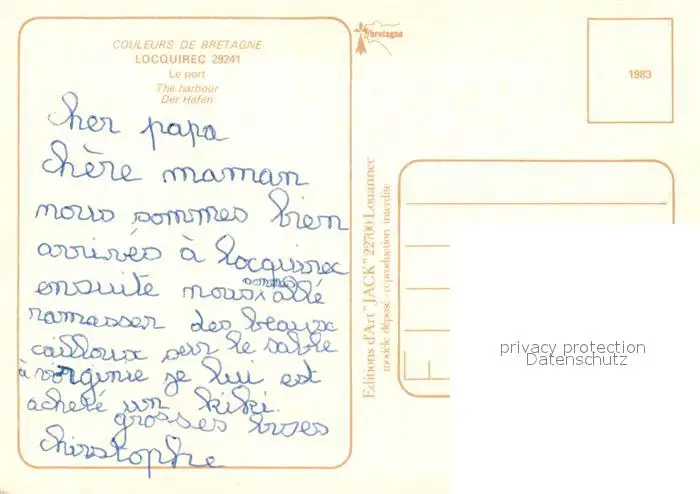 COULEURS DE BRETAGNE
LOCQUIREC 29241
Le port
The harbour
Der Hafen
cher papa
chère maman
nous sommes bien
arrivés à locquirec
ensuite nous sommes allé
ramasser des beaux
cailloux sur le sable
à virginie je lui est
acheté un kiki.
grosses bises
chirstophe
Bretagne
1983
Editions d'Art "JACK" 22700 Louannec
modèle déposé - reproduction interdite
privacy protection
Datenschutz